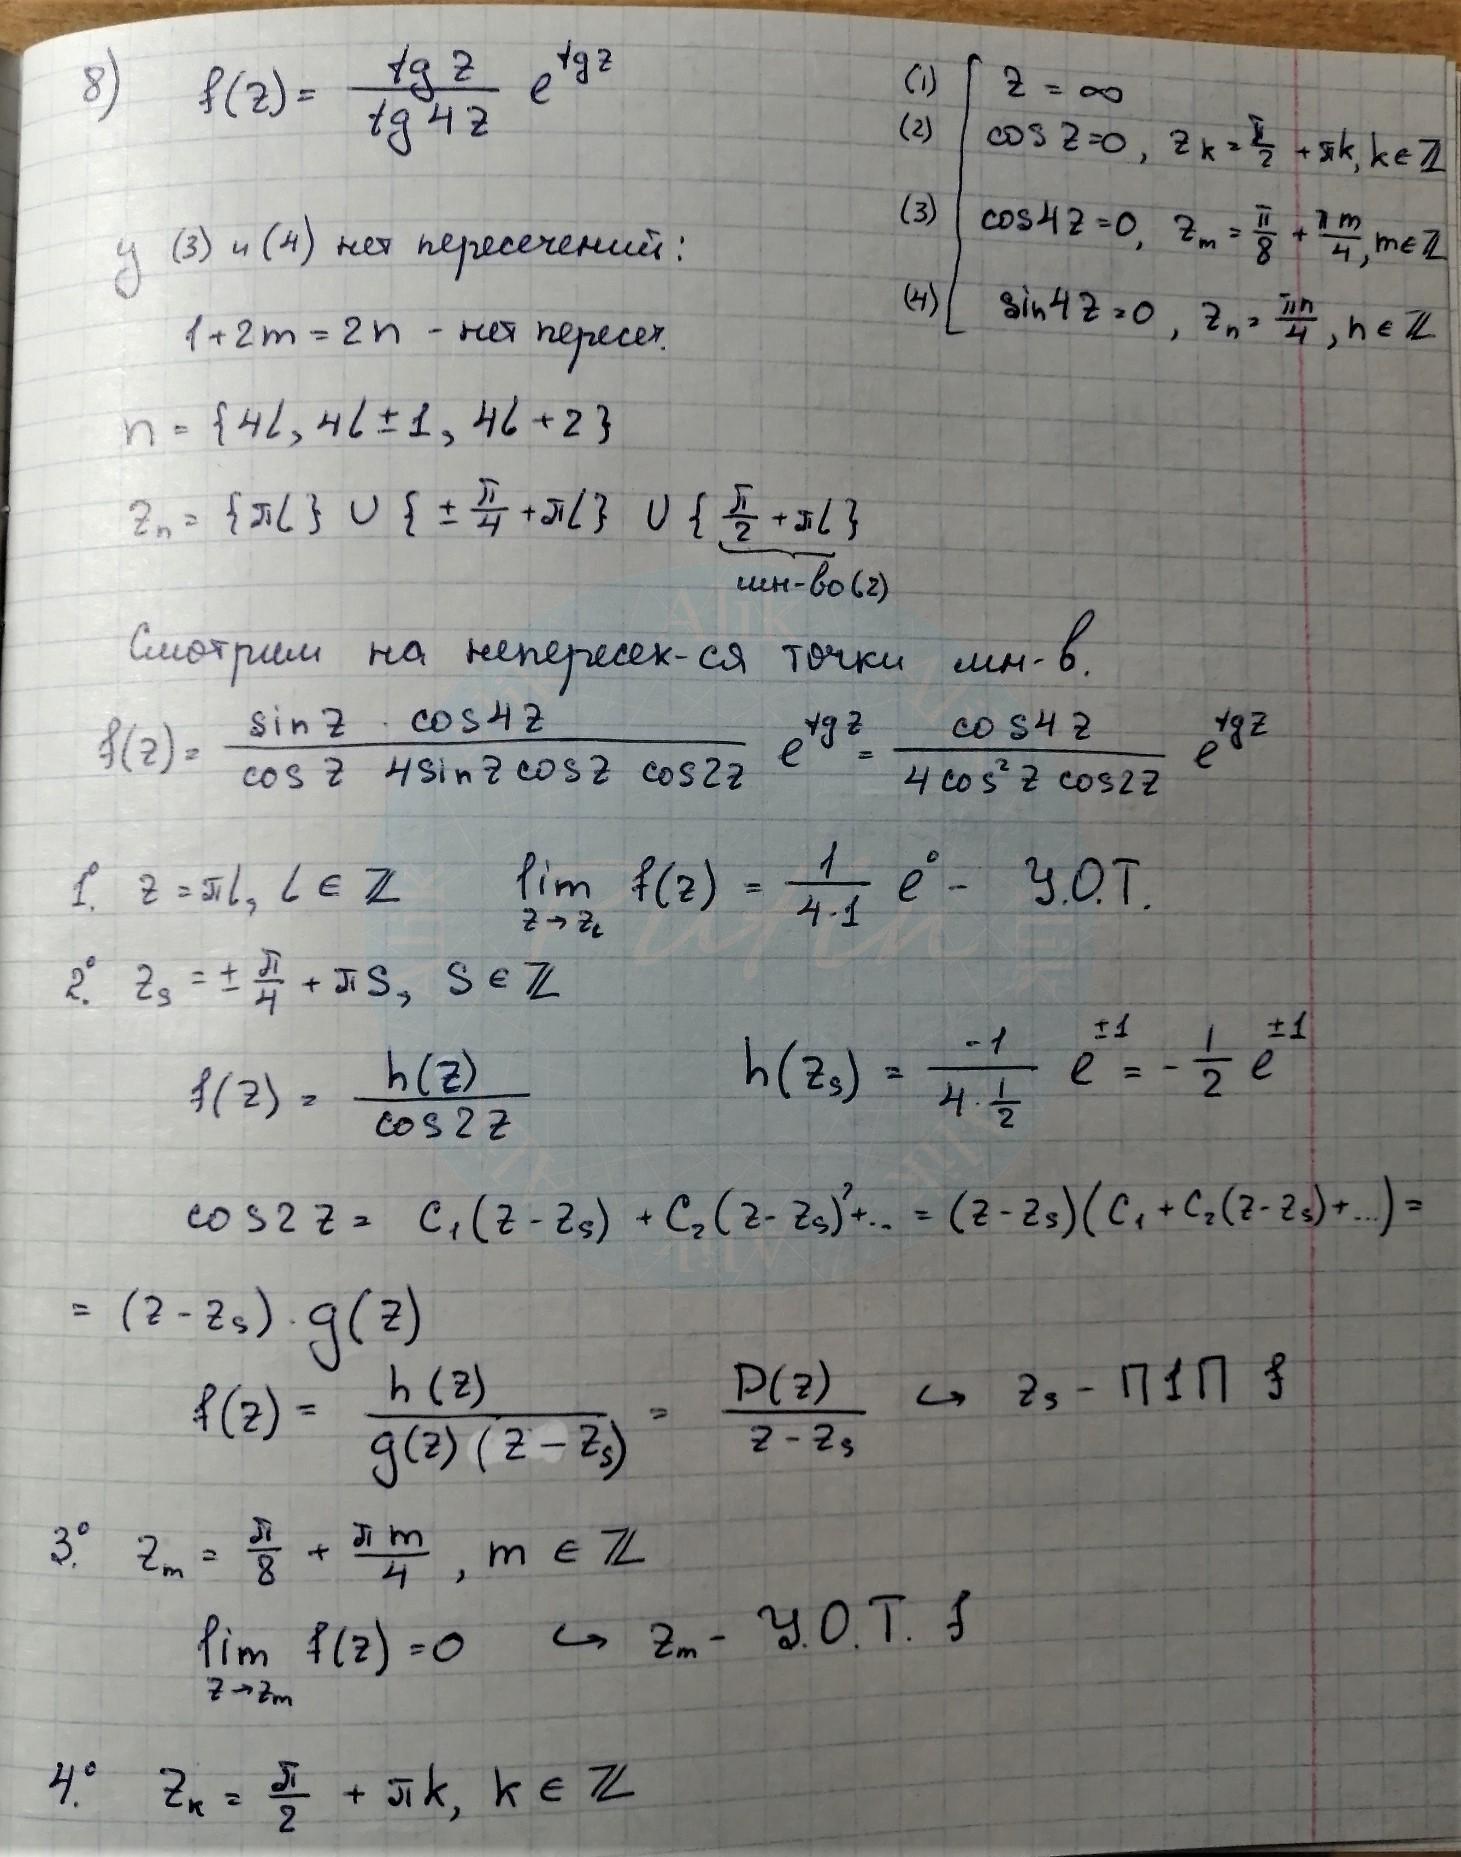 8) f(z) = tg z / tg 4z e^{tg z}
(1) z = ∞
(2) cos z = 0, z_k = π/2 + πk, k ∈ ℤ
(3) cos 4z = 0, z_m = π/8 + πm/4, m ∈ ℤ
(4) sin 4z = 0, z_n = πn/4, n ∈ ℤ
у (3) и (4) нет пересечений:
1 + 2m = 2n - нет пересеч.
n = {4l, 4l ± 1, 4l + 2}
z_n = {πl} ∪ {± π/4 + πl} ∪ {π/2 + πl}
мн-во (2)
Смотрим на непересек-ся точки мн-в.
f(z) = sin z · cos 4z / cos z 4 sin z cos z cos 2z e^{tg z} = cos 4z / 4 cos² z cos 2z e^{tg z}
1°. z = πl, l ∈ ℤ lim_{z→z_l} f(z) = 1 / 4·1 e^0 - У.О.Т.
2°. z_s = ± π/4 + πs, s ∈ ℤ
f(z) = h(z) / cos 2z h(z_s) = -1 / 4·1/2 e^{±1} = - 1/2 e^{±1}
cos 2z = C_1(z - z_s) + C_2(z - z_s)² + ... = (z - z_s)(C_1 + C_2(z - z_s) + ...) =
= (z - z_s) · g(z)
f(z) = h(z) / g(z)(z - z_s) = D(z) / z - z_s ↪ z_s - П1П f
3°. z_m = π/8 + πm/4, m ∈ ℤ
lim_{z→z_m} f(z) = 0 ↪ z_m - У.О.Т. f
4°. z_k = π/2 + πk, k ∈ ℤ